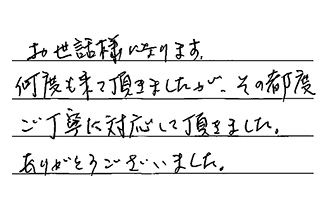 お世話様になります。
何度も来て頂きましたが、その都度
ご丁寧に対応して頂きました。
ありがとうございました。